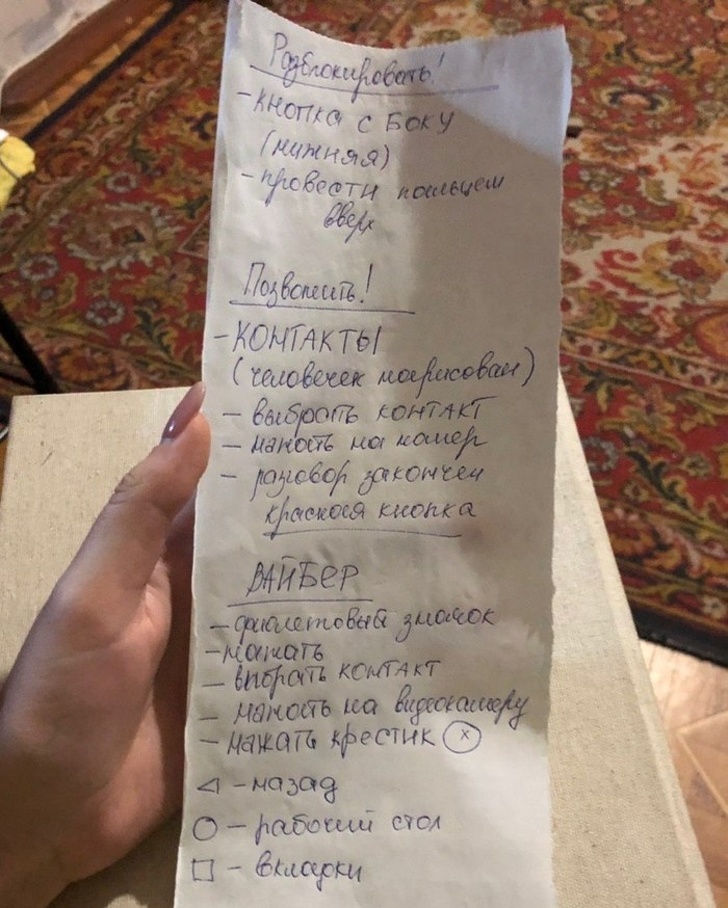 Разблокировать!
- кнопка с боку
(нижняя)
- провести пальцем
вверх
Позвонить!
- КОНТАКТЫ
(человечек нарисован)
- выбрать контакт
- нажать на номер
- разговор закончен
красная кнопка
ВАЙБЕР
- фиолетовый значок
- нажать
- выбрать контакт
- нажать на видеокамеру
- нажать крестик ⓧ
◁ - назад
○ - рабочий стол
□ - вкладки